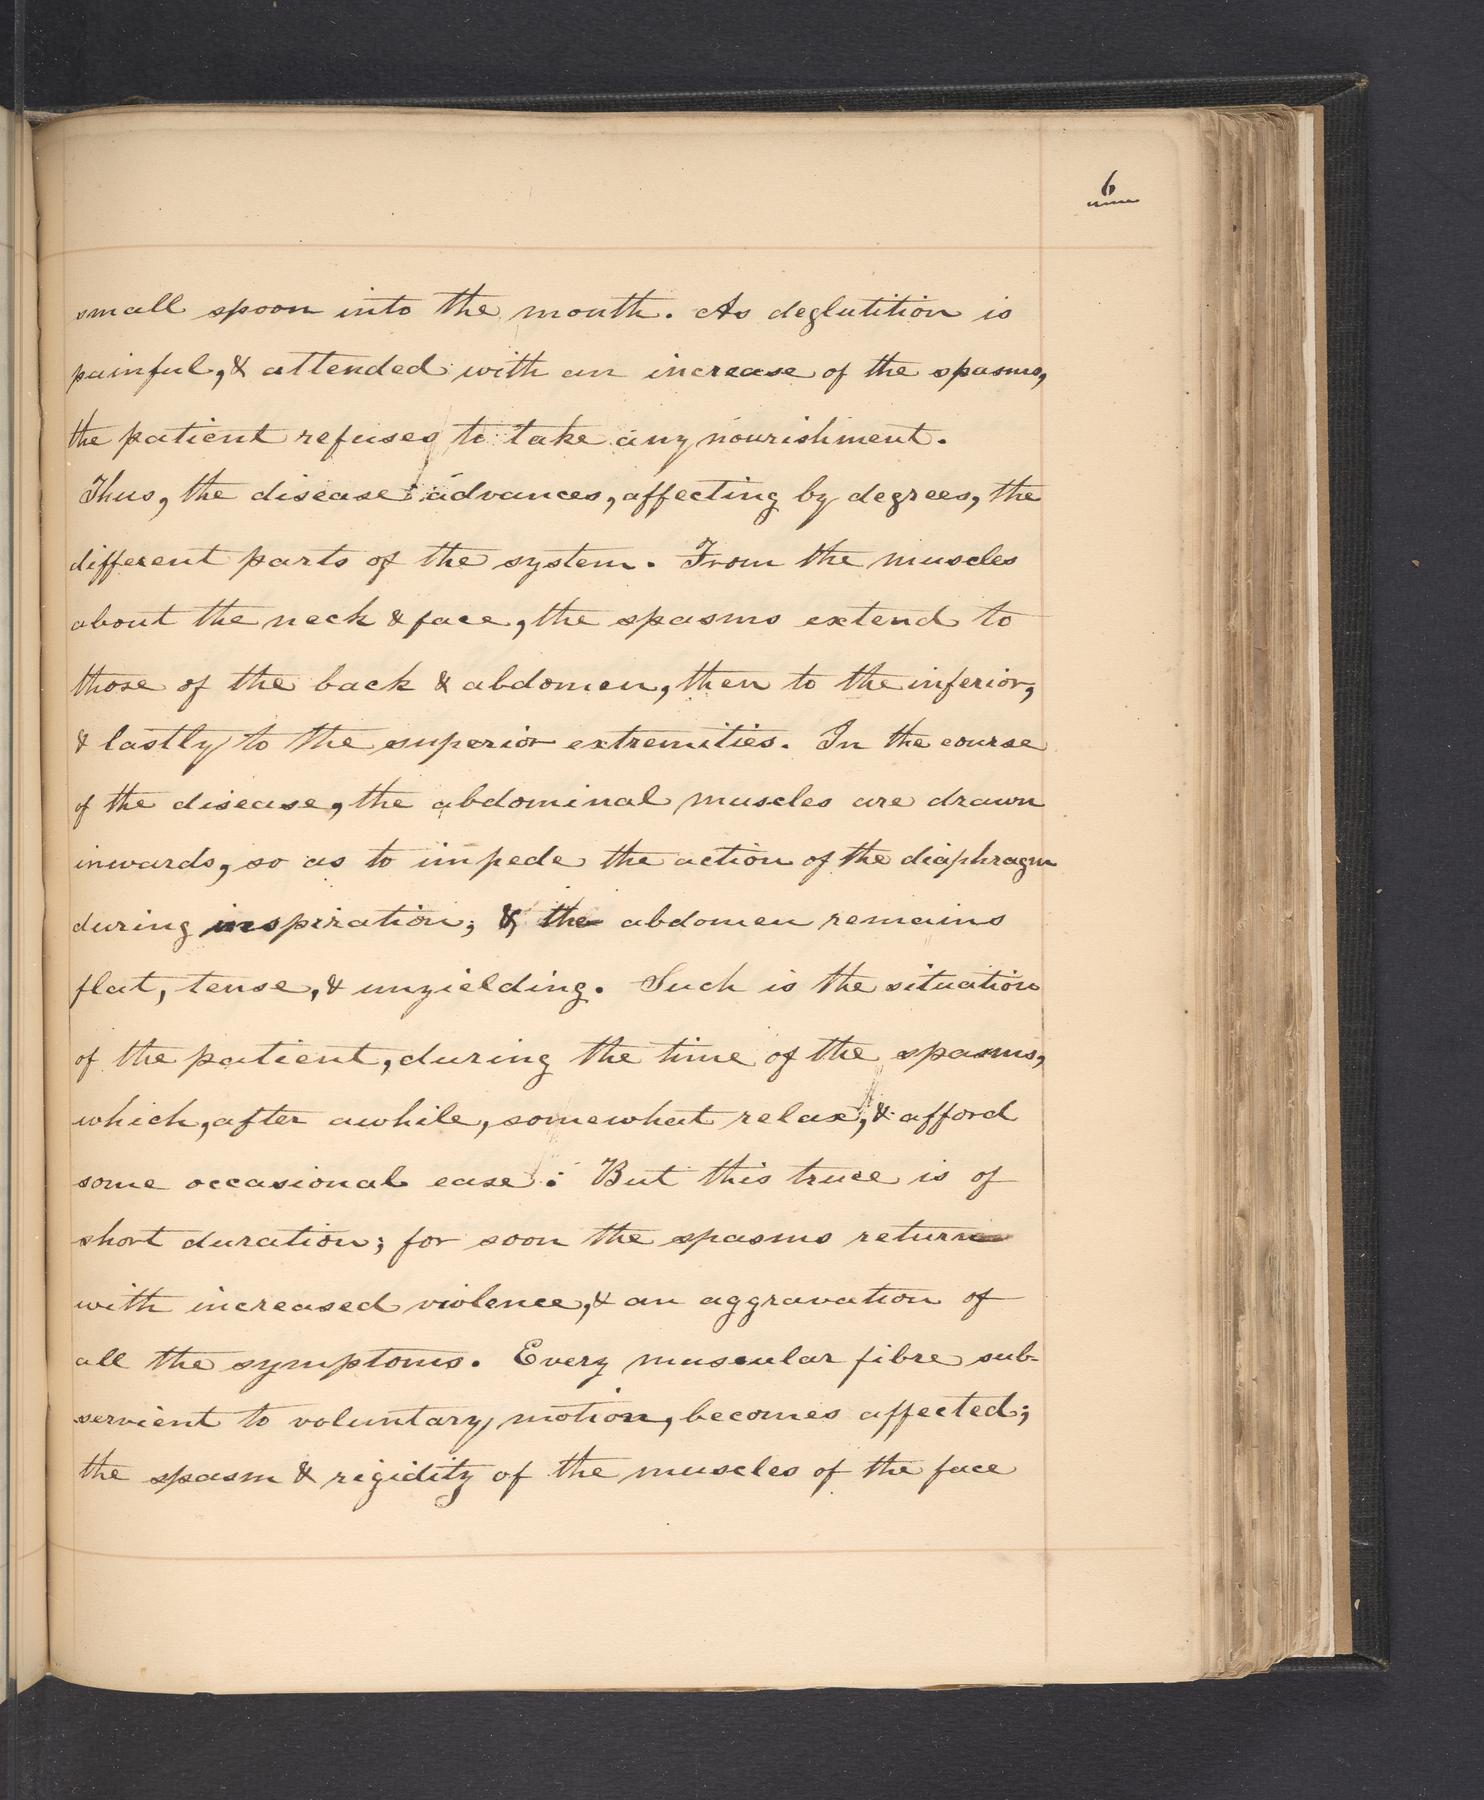 6
small spoon into the mouth. As deglutition is
painful, & attended with an increase of the spasms,
the patient refuses to take any nourishment.
Thus, the disease advances, affecting by degrees, the
different parts of the system. From the muscles
about the neck & face, the spasms extend to
those of the back & abdomen, then to the inferior,
& lastly to the superior extremities. In the course
of the disease, the abdominal muscles are drawn
inwards, so as to impede the action of the diaphragm
during inspiration; & the abdomen remains
flat, tense, & unyielding. Such is the situation
of the patient, during the time of the spasms,
which, after awhile, somewhat relax, & afford
some occasional ease: But this truce is of
short duration; for soon the spasms return
with increased violence, & an aggravation of
all the symptoms. Every muscular fibre sub-
servient to voluntary motion, becomes affected;
the spasm & rigidity of the muscles of the face